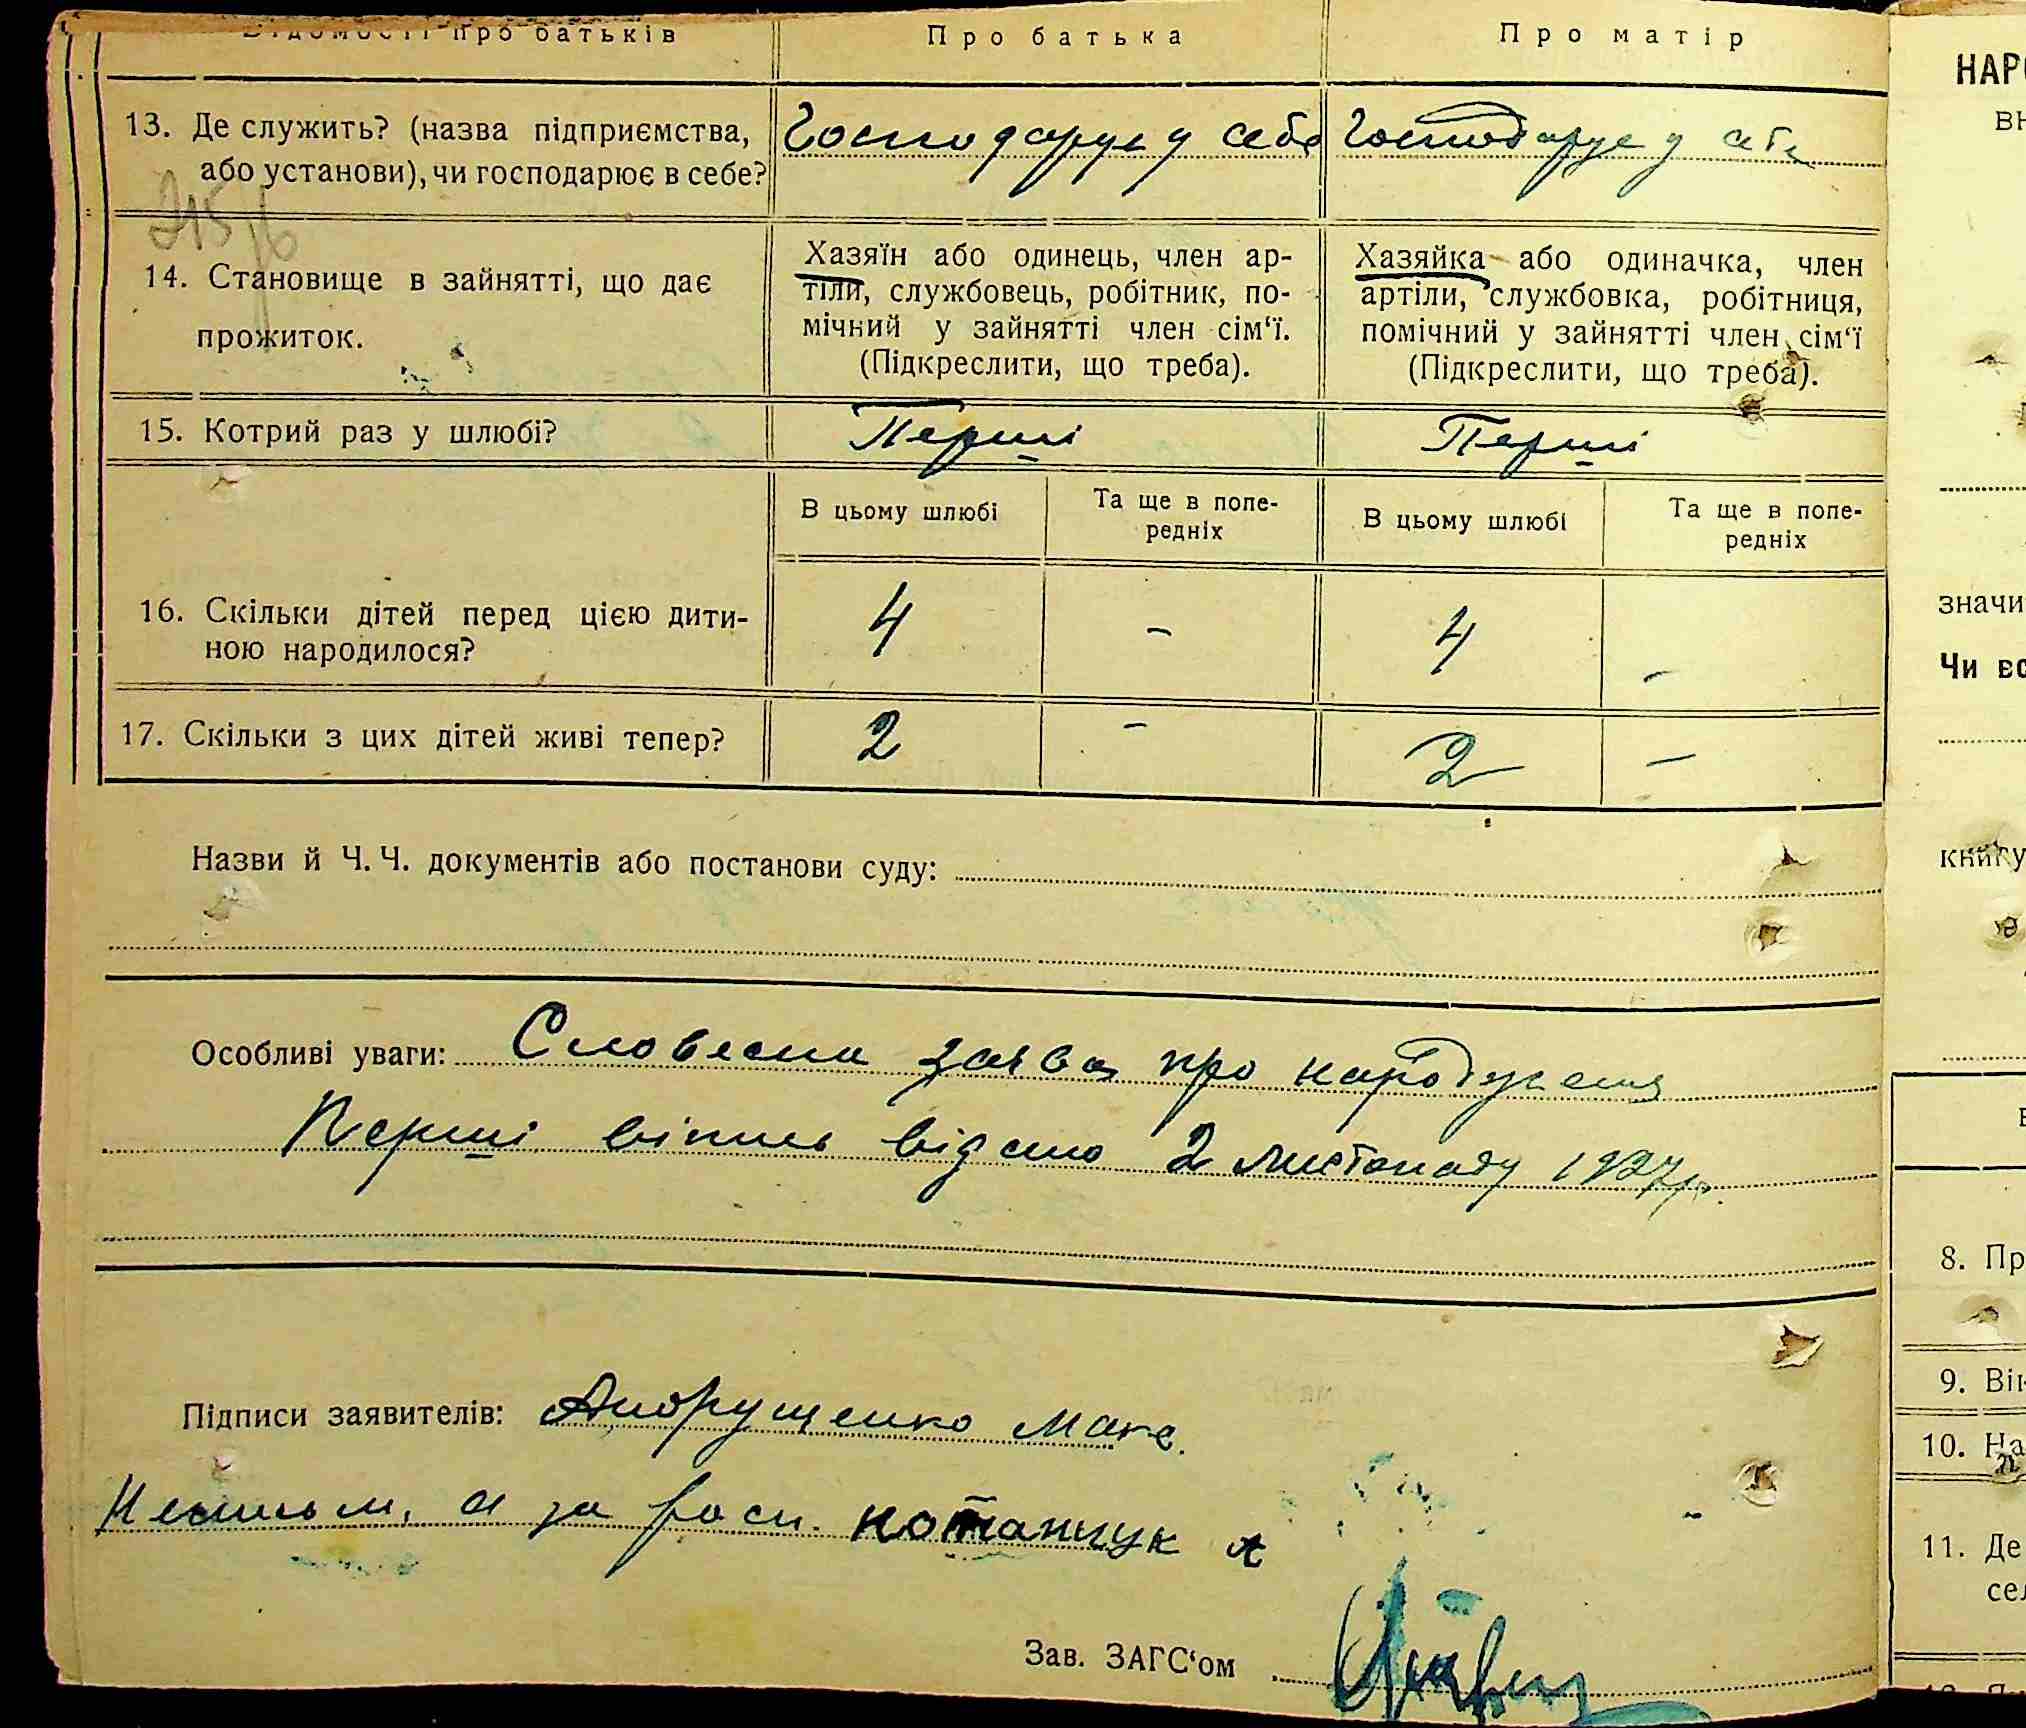 Відомості про батьків
Про батька
Про матір
13. Де служить? (назва підприємства,
або установи), чи господарює в себе?
Господарує у себе
Господарує у себе
215
14. Становище в зайнятті, що дає
прожиток.
Хазяїн або одинець, член ар-
тіли, службовець, робітник, по-
мічний у зайнятті член сім‘ї.
(Підкреслити, що треба).
Хазяйка або одиначка, член
артіли, службовка, робітниця,
помічний у зайнятті член сім‘ї
(Підкреслити, що треба).
15. Котрий раз у шлюбі?
Перші
Перші
В цьому шлюбі
Та ще в попе-
редніх
В цьому шлюбі
Та ще в попе-
редніх
16. Скільки дітей перед цією дити-
ною народилося?
4
-
4
-
17. Скільки з цих дітей живі тепер?
2
-
2
-
Назви й Ч. Ч. документів або постанови суду:
Особливі уваги: Словесна заява про народження
Перші віпись відано 2 листопаду 1927 р.
Підписи заявителів: Андрущенко Макс.
Неписьм. а за расп. Потапчук А
Зав. ЗАГС‘ом
НАР
вн
значи
Чи вс
книгу
8. Пр
9. Вік
10. На
11. Де
сел